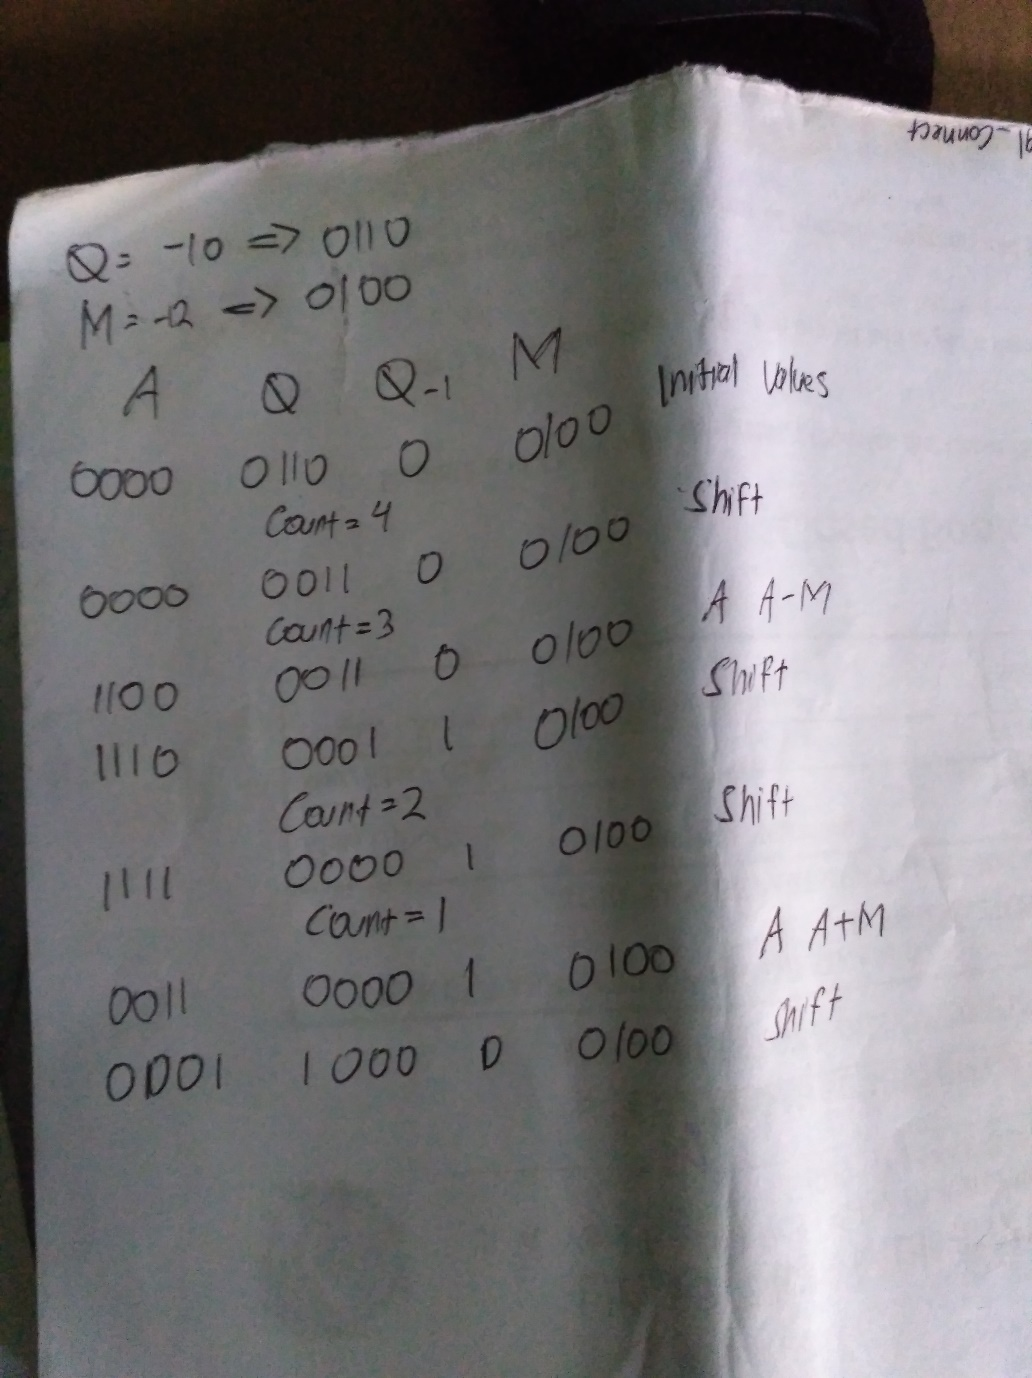 al-Connect
Q = -10 => 0110
M = -12 => 0100
A Q Q-1 M
0000 0110 0 0100 Initial Values
Count = 4
0000 0011 0 0100 Shift
Count = 3
1100 0011 0 0100 A A-M
1110 0001 1 0100 Shift
Count = 2
1111 0000 1 0100 Shift
Count = 1
0011 0000 1 0100 A A+M
0001 1000 0 0100 Shift